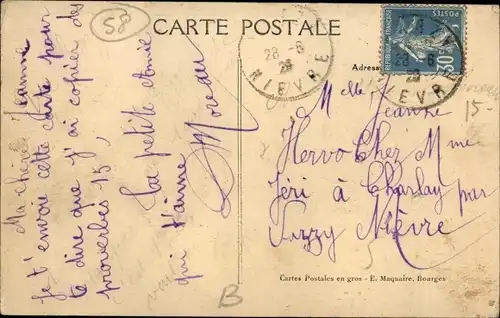 58
CARTE POSTALE
Ma chère Jeanne
Je t'envoie cette carte pour
te dire que j'ai copier des
proverbes 15,
la petite Amie
qui t'aime
Moreau
28 -6
NIEVRE
POSTES
REPUBLIQUE FRANÇAISE
30
NIEVRE
Adresse
Melle Jeanne
15-
Hervo Chez Mme
Féri à Charlay par
Varzy Nièvre
Cartes Postales en gros - E. Maquaire, Bourges
B